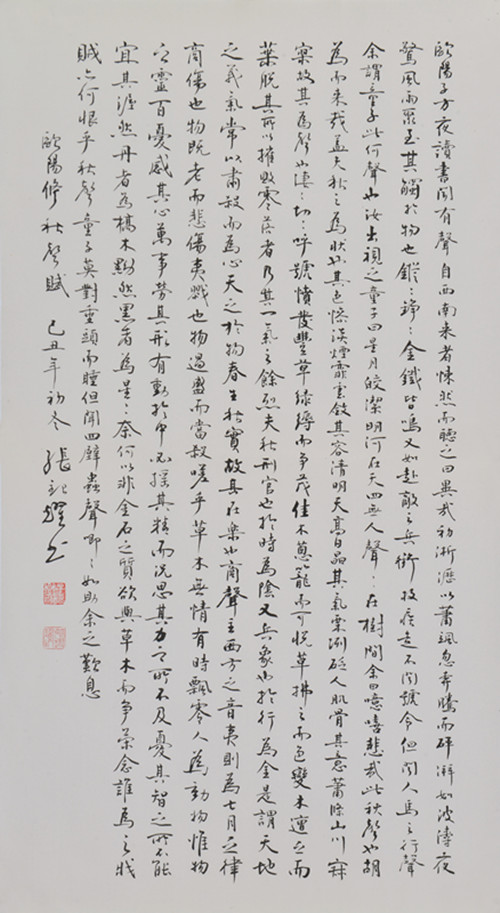 歐陽子方夜讀書聞有聲自西南來者悚然而聽之曰異哉初淅瀝以蕭颯忽奔騰而砰湃如波濤夜
驚風雨驟至其觸於物也鏦〻錚〻金鐵皆鳴又如赴敵之兵銜枚疾走不聞號令但聞人馬之行聲
余謂童子此何聲也汝出視之童子曰星月皎潔明河在天四無人聲〻在樹間余曰噫嘻悲哉此秋聲也胡
為而來哉蓋夫秋之為狀也其色慘淡煙霏雲斂其容清明天高日晶其氣栗冽砭人肌骨其意蕭條山川寂
寥故其為聲也淒〻切〻呼號憤發豐草綠縟而爭茂佳木蔥籠而可悅草拂之而色變木遭之而
葉脫其所以摧敗零落者乃其一氣之餘烈夫秋刑官也於時為陰又兵象也於行為金是謂天地
之義氣常以肅殺而為心天之於物春生秋實故其在樂也商聲主西方之音夷則為七月之律
商傷也物既老而悲傷夷戮也物過盛而當殺嗟乎草木無情有時飄零人為動物惟物
之靈百憂感其心萬事勞其形有動於中必搖其精而況思其力之所不及憂其智之所不能
宜其渥然丹者為槁木黟然黑者為星〻奈何以非金石之質欲與草木而爭榮念誰為之戕
賊亦何恨乎秋聲童子莫對垂頭而睡但聞四壁蟲聲唧〻如助余之歎息
歐陽修秋聲賦 己丑年初冬 張書